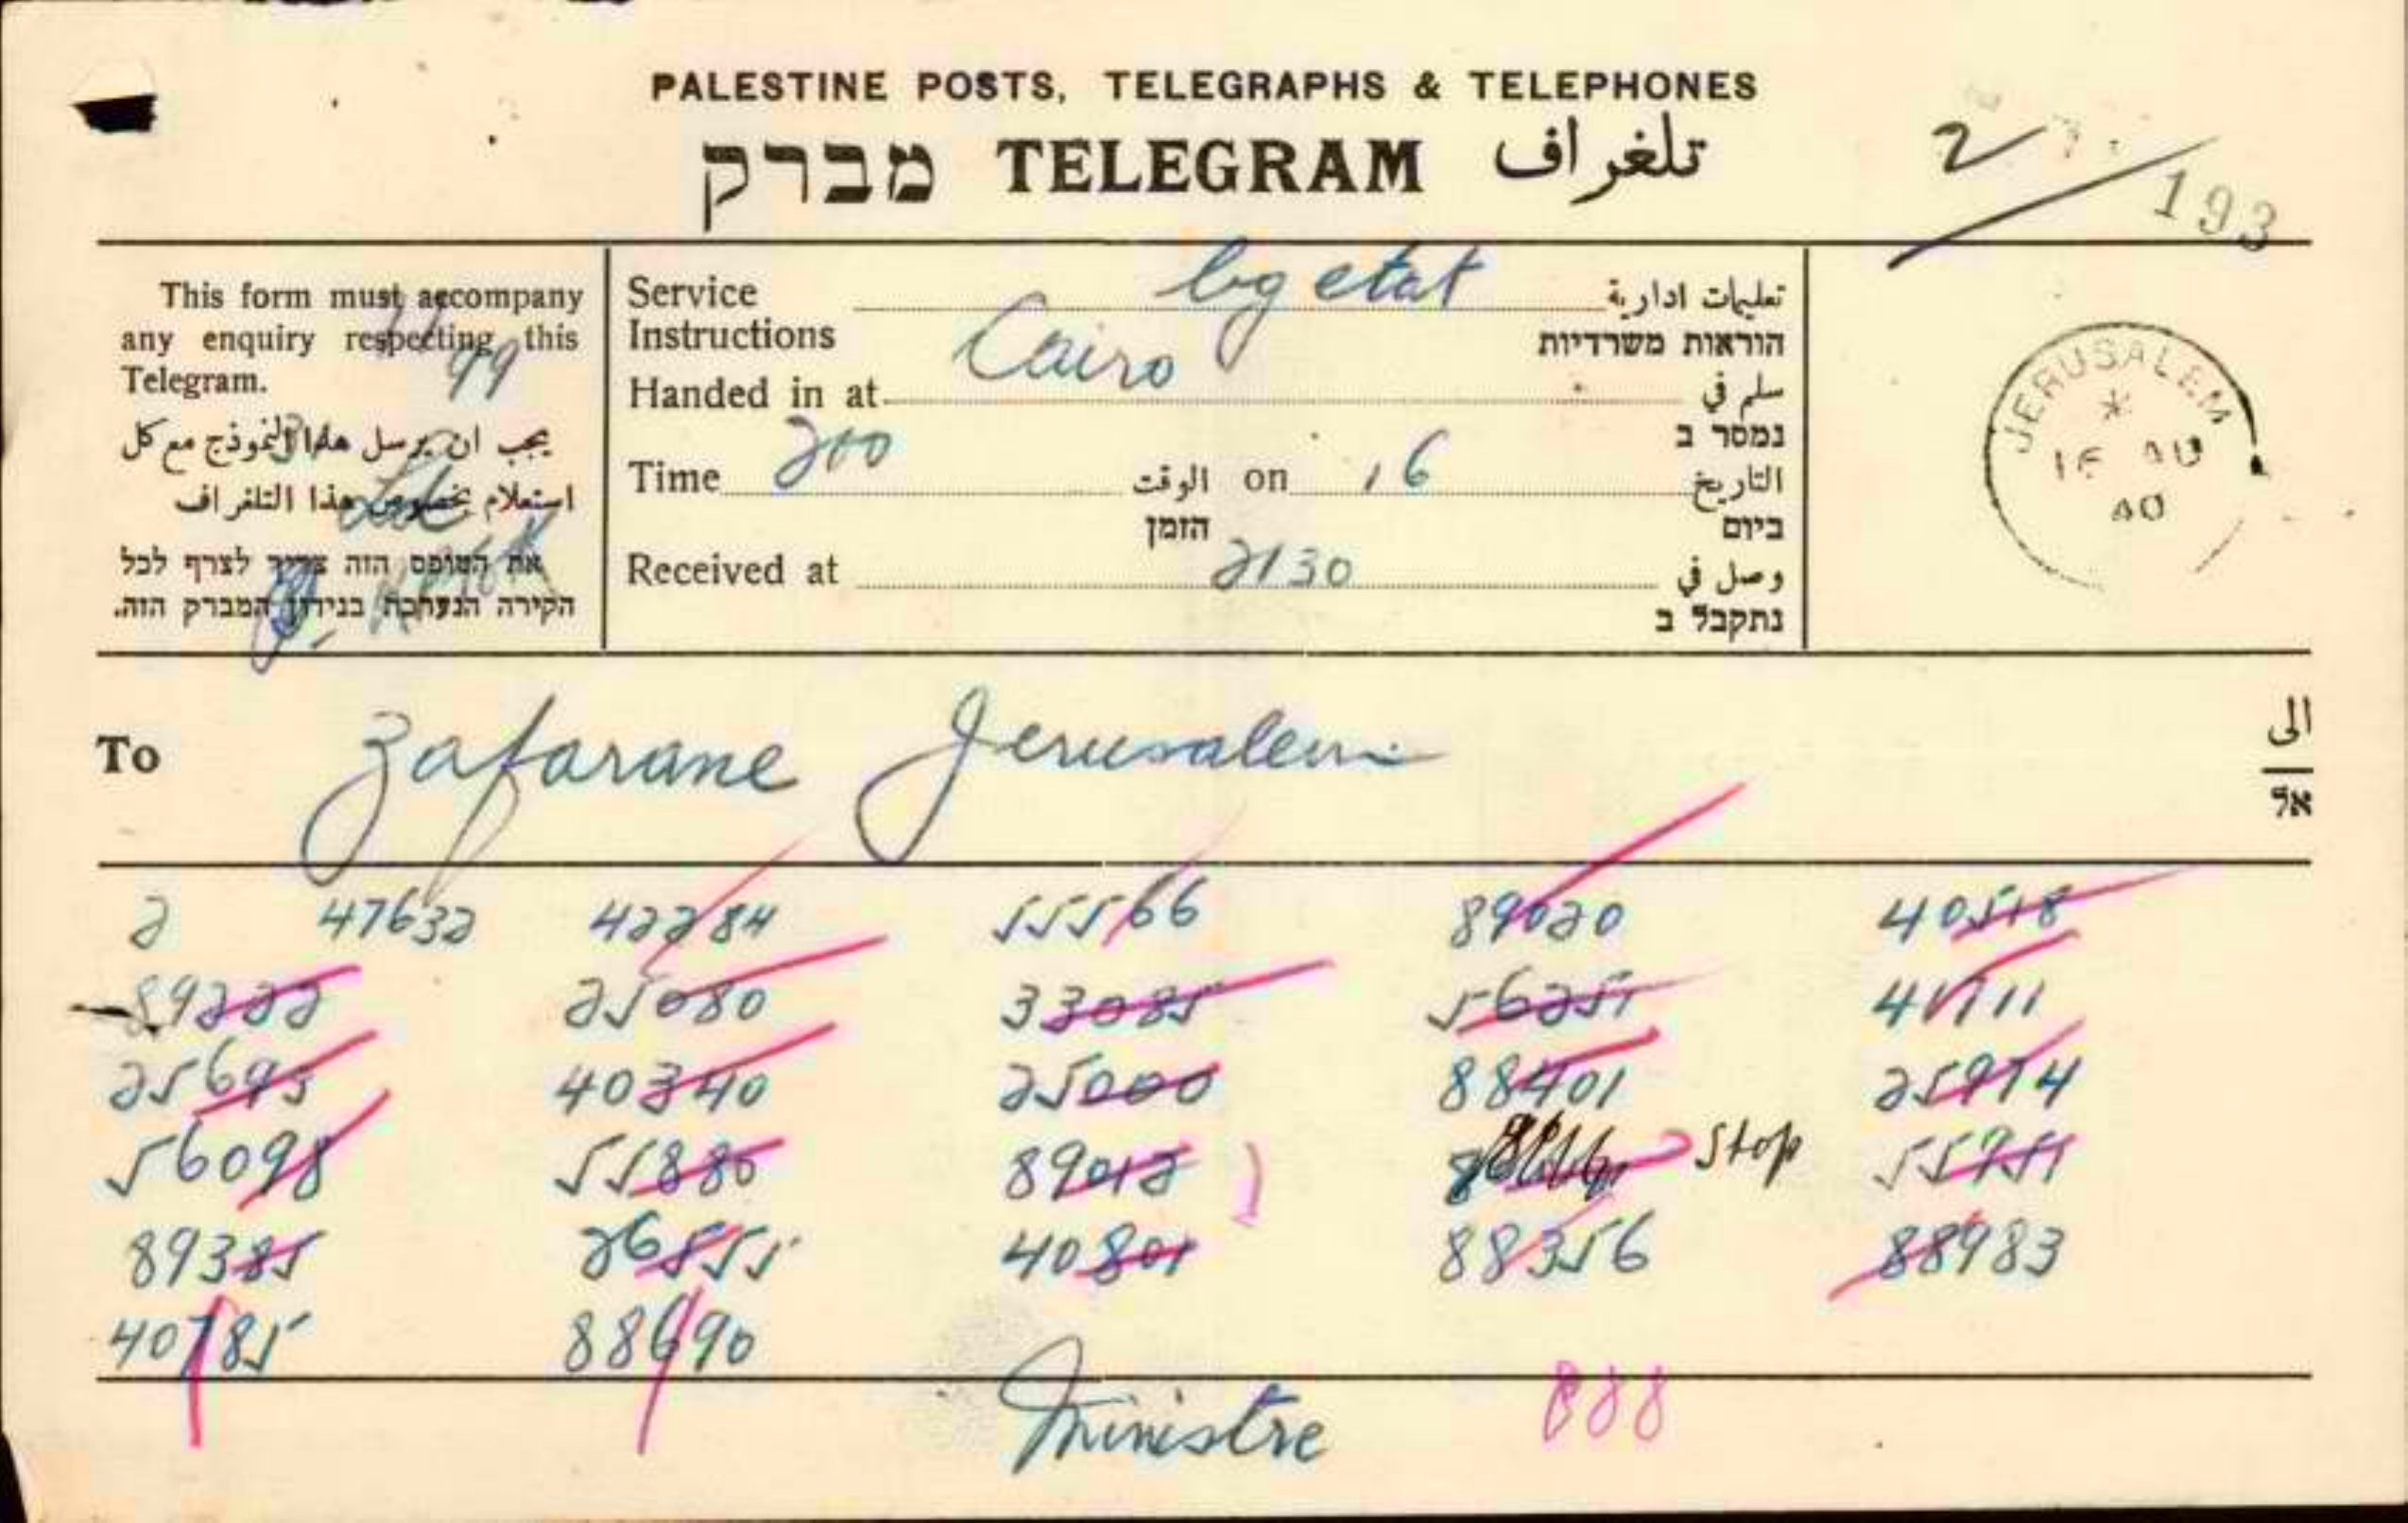 PALESTINE POSTS, TELEGRAPHS & TELEPHONES
מברק TELEGRAM تلغراف
2
193
This form must accompany
any enquiry respecting this
Telegram.
يجب ان يرسل هذا النموذج مع كل
استعلام بخصوص هذا التلغراف
את הטופס הזה צריך לצרף לכל
חקירה הנערכת בנידון המברק הזה.
99
Service Instructions bg etat تعليمات ادارية
הוראות משרדיות
Handed in at Cairo سلم في
נמסר ב
Time 200 الوقت on 16 التاريخ
הזמן ביום
Received at 2130 وصل في
נתקבל ב
JERUSALEM
16 AU
40
To Zafarane Jerusalem الى
אל
2 47632 42284 55566 89020 40518
89222 25080 33085 56251 41711
25695 40340 25000 88401 25974
56098 55880 89012 Stop 55751
89385 26555 40801 88356 88983
40785 88690
Ministre 888